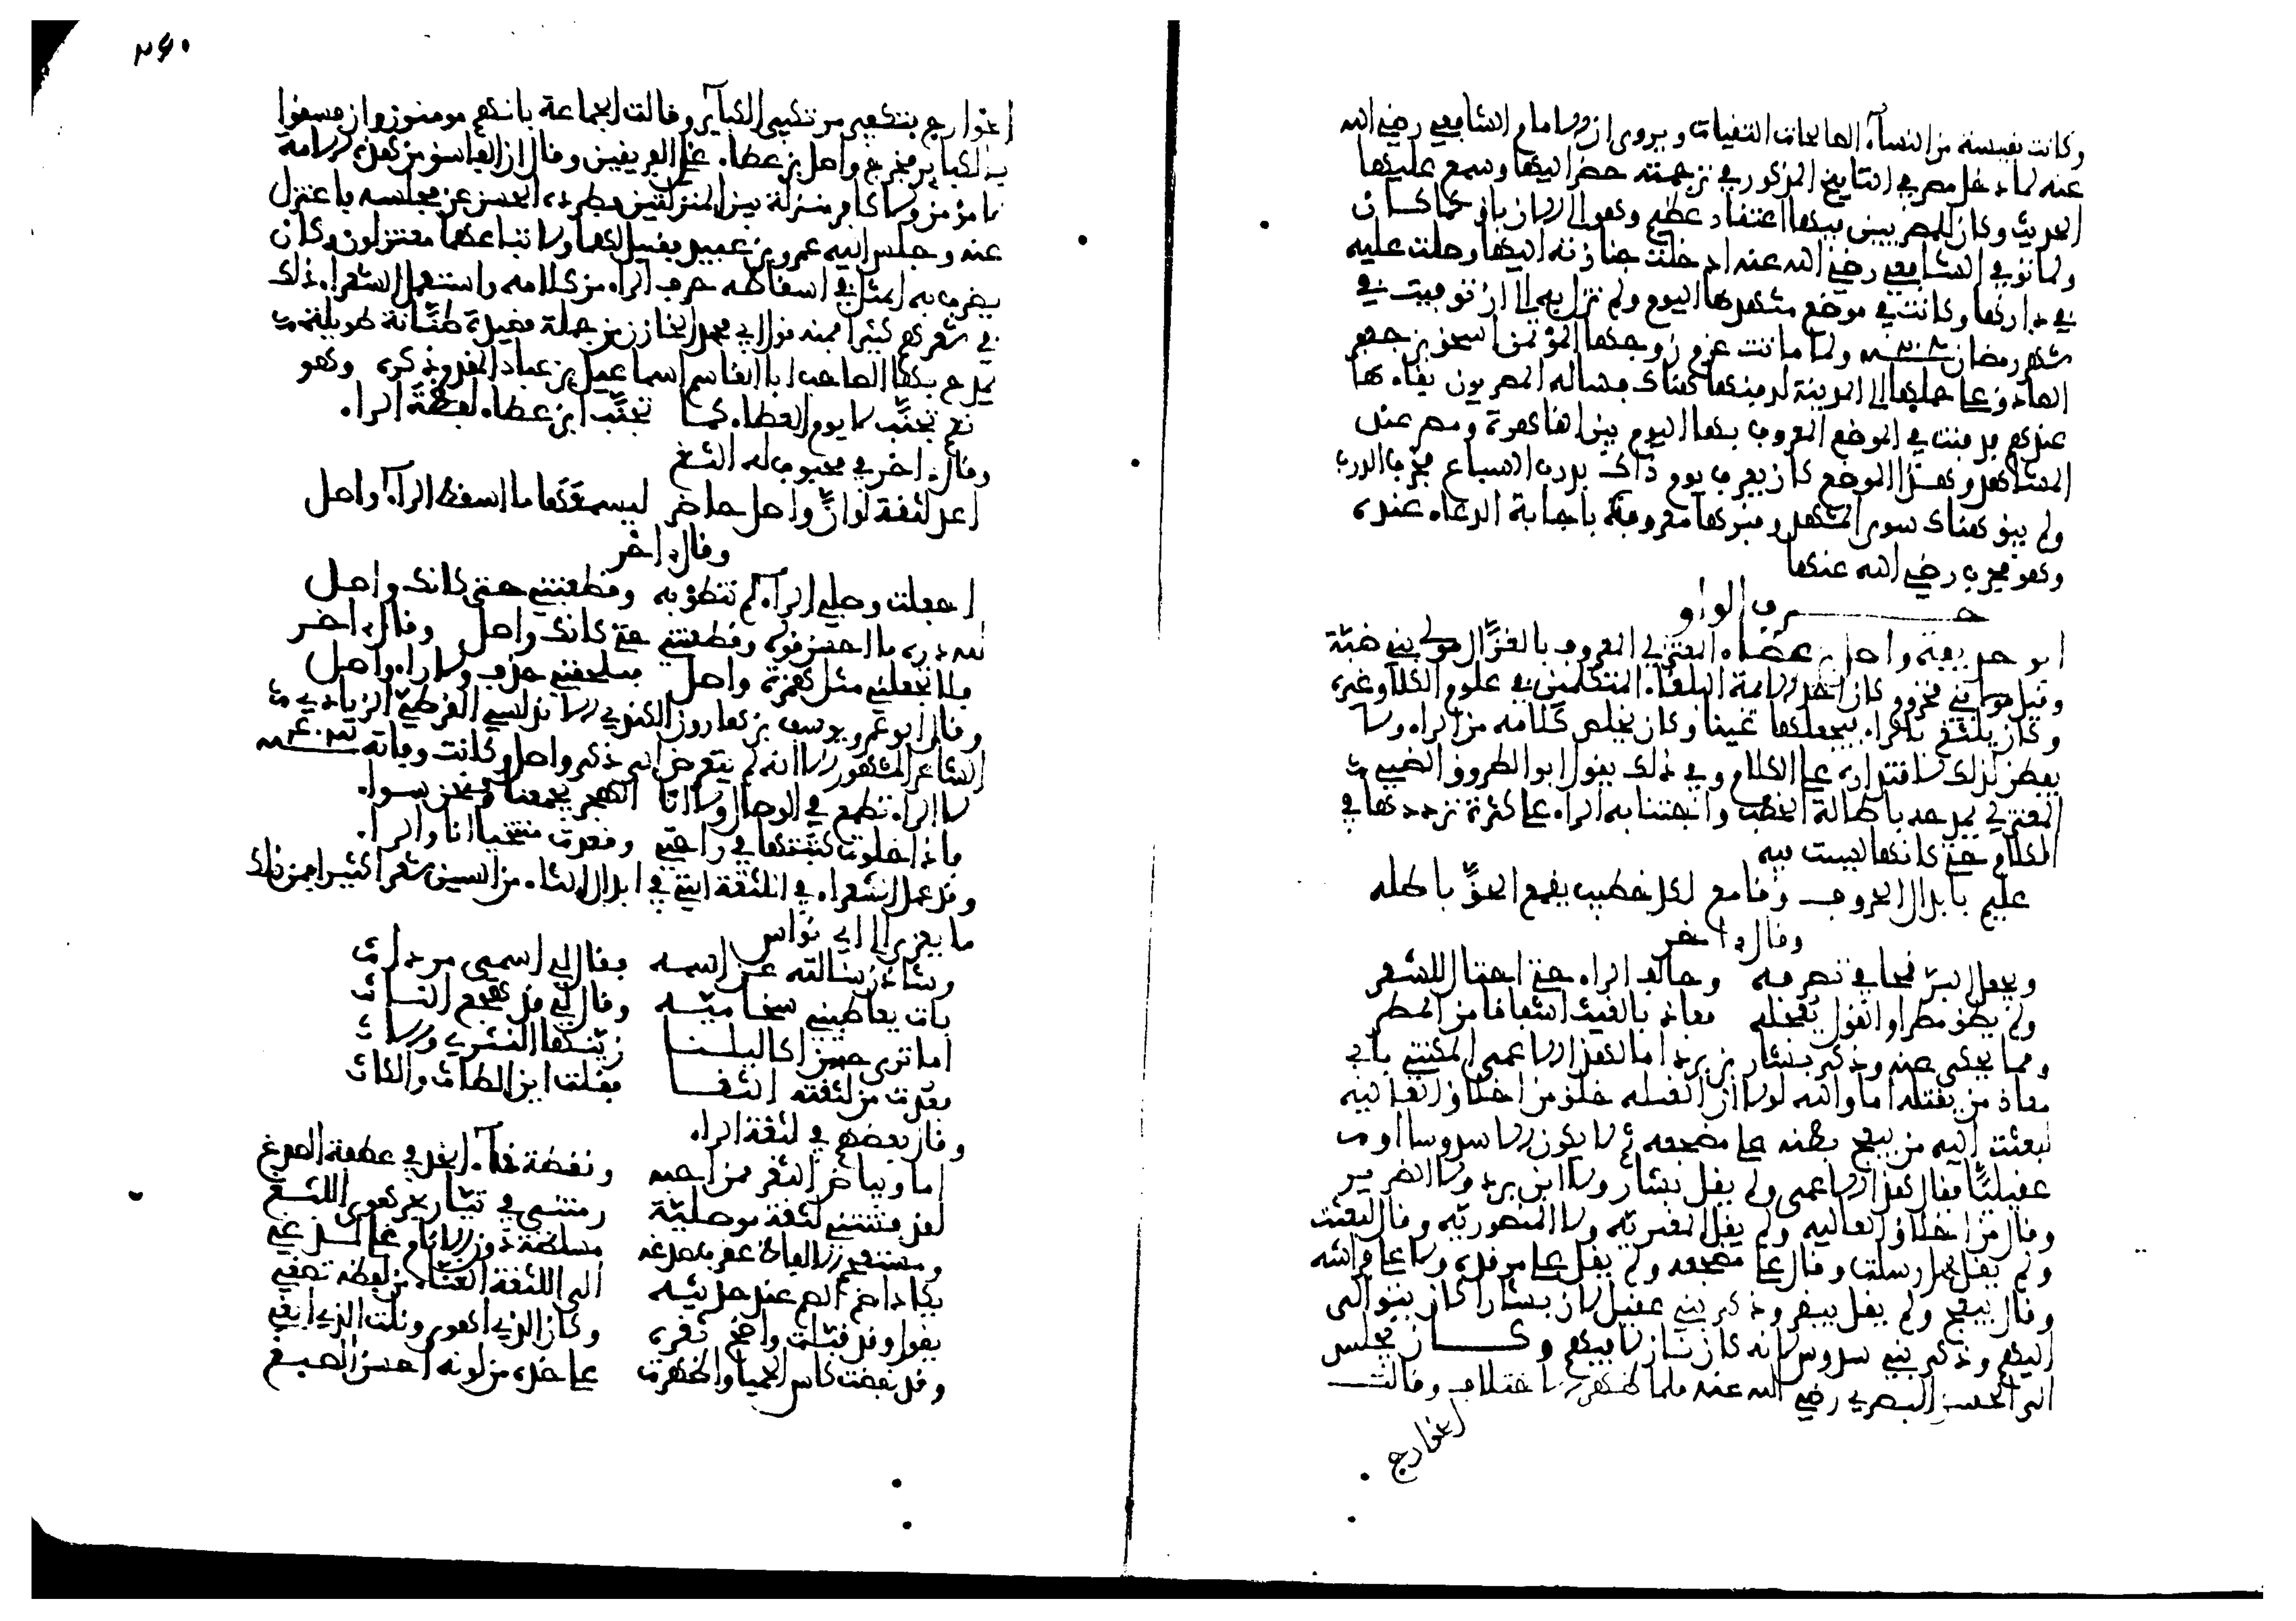 وكانت نفيسة من النساء الصالحات التقيات ويروى ان الامام الشافعي رضي الله
عنه لما دخل مصر في التاريخ المذكور في ترجمته حضر اليها وسمع عليها
الحديث وكان للمصريين فيها اعتقاد عظيم وهو الى الان باق كما كان
ولما توفي الشافعي رضي الله عنه ادخلت جنازته اليها وصلت عليه
في دارها وكانت في موضع مشهدها اليوم ولم تزل به الى ان توفيت في
شهر رمضان ولما ماتت عزم زوجها المؤتمن اسحق بن جعفر
الصادق على حملها الى المدينة ليدفنها هناك فسأله المصريون بقاءها
عندهم فدفنت في الموضع المعروف بها اليوم بين القاهرة ومصر عند
المشاهد وهذا الموضع كان يعرف يوم ذاك بدرب السباع فخرب الدرب
ولم يبق هناك سوى المشهد وقبرها معروف باجابة الدعاء عنده
وهو مجرب رضي الله عنها
حرف الواو
ابو حذيفة واصل بن عطاء المعتزلي المعروف بالغزال مولى بني ضبة
وقيل مولى بني مخزوم كان احد الايمة البلغاء المتكلمين في علوم الكلام وغيره
وكان يلثغ بالراء فيجعلها غينا وكان يخلص كلامه من الراء ولا
يفطن لذلك لاقتداره على الكلام وفي ذلك يقول ابو الطروق الضبي
المعتزلي يمدحه باطالة الخطب واجتنابه الراء على كثرة ترددها في
الكلام حتى كانها ليست فيه
عليم بابدال الحروف وقامع لكل خطيب يقمع الحق باطله
وقال اخر
ويجعل البر قمحا في تصرفه وخالف الراء حتى احتال للشعر
ولم يطق مطرا والقول يعجله فعاذ بالغيث اشفاقا من المطر
ومما يحكى عنه وذكر بشار بن برد اما لهذا الاعمى المكتني بابي
معاذ من يقتله اما والله لولا ان الغيلة خلق من اخلاق الغالية
لبعثت اليه من يبعج بطنه على مضجعه ثم لا يكون الا سدوسيا او
عقيليا فقال هذا الاعمى ولم يقل بشار ولا ابن برد ولا الضرير
وقال من اخلاق الغالية ولم يقل المغيرية ولا المنصورية وقال لبعثت
ولم يقل لارسلت وقال على مضجعه ولم يقل على مرقده ولا على فراشه
وقال يبعج ولم يقل يبقر وذكر بني عقيل لان بشارا كان ينتوالى
اليهم وذكر بني سدوس لانه كان نازلا فيهم وكان يجلس
الى الحسن البصري رضي الله عنه فلما ظهر الاختلاف وقالت
الخوارج
٢٦٠
الخوارج بتكفير مرتكبي الكبائر وقالت الجماعة بانهم مومنون وان فسقوا
بالكبائر فخرج واصل بن عطاء عن الفريقين وقال ان الفاسق من هذه الامة
لا مؤمن ولا كافر منزلة بين المنزلتين فطرده الحسن عن مجلسه فاعتزل
عنه وجلس اليه عمرو بن عبيد فقيل لهما ولاتباعهما معتزلون وكان
يضرب به المثل في اسقاطه حرف الراء من كلامه واستعمل الشعراء ذلك
في شعرهم كثيرا فمنه قول ابي محمد الخازن من جملة قصيدة طنانة طويلة
يمدح بها الصاحب ابا القاسم اسماعيل بن عباد المقدم ذكره وهو
نعم تجنب لا يوم العطاء كما تجنب ابن عطاء لفظة الراء
وقال اخر في محبوب له الثغ
اعد لثغة لو ان واصل حاضر ليسمعها ما اسقط الراء واصل
وقال اخر
اجعلت وصلي الراء لم تنطق به وقطعتني حتى كانك واصل
لله دره ما احسن قوله وقطعتني حتى كانك واصل وقال اخر
فلا تجعلني مثل همزة واصل فتلحقني حذفا ولا راء واصل
وقال ابو عمرو يوسف بن هارون الكندي الاندلسي القرطبي الرمادي
الشاعر المشهور الا انه لم يتعرض الى ذكر واصل وكانت وفاته سنة
لا الراء تطمع في الوصال ولا انا الهجر يجمعنا ونحن سواء
فاذا خلوت كتبتها في راحتي وقعدت منتحبا انا والراء
وقد عمل الشعراء في اللثغة التي في ابدال الثاء من السين شعرا كثيرا فمن ذلك
ما يعزى الى ابي نواس
وشادن سالته عن اسمه فقال لي اسمي مرداث
بات يعاطيني سخامية وقال لي قد هجع الناث
اما ترى حثن اكاليلنا زينها النثرين والآث
فعدت من لثغته الثغا فقلت اين الطاث والكاث
وقال بعضهم في لثغة الراء
اما وبياض الثغر ممن احبه ونقطة خال الخد في عطفة الصدغ
لقد فتنتني لثغة موصلية رمتني في تيار بحر هوى اللثغ
ومستعجم الالفاظ عقرب صدغه مسلطة دون الانام على لدغي
يكاد اصم الصم عند حديثه الى اللثغة الغناء من لفظه تصغي
يقول وقد قبلت واضح ثغره وكان الذي اهوى ونلت الذي ابغي
وقد نفضت كاس الحميا واظهرت على خده من لونه احسن الصبغ